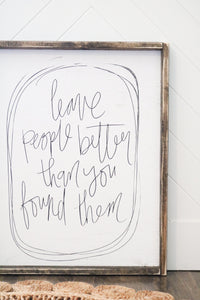 leave
people better
than you
found them